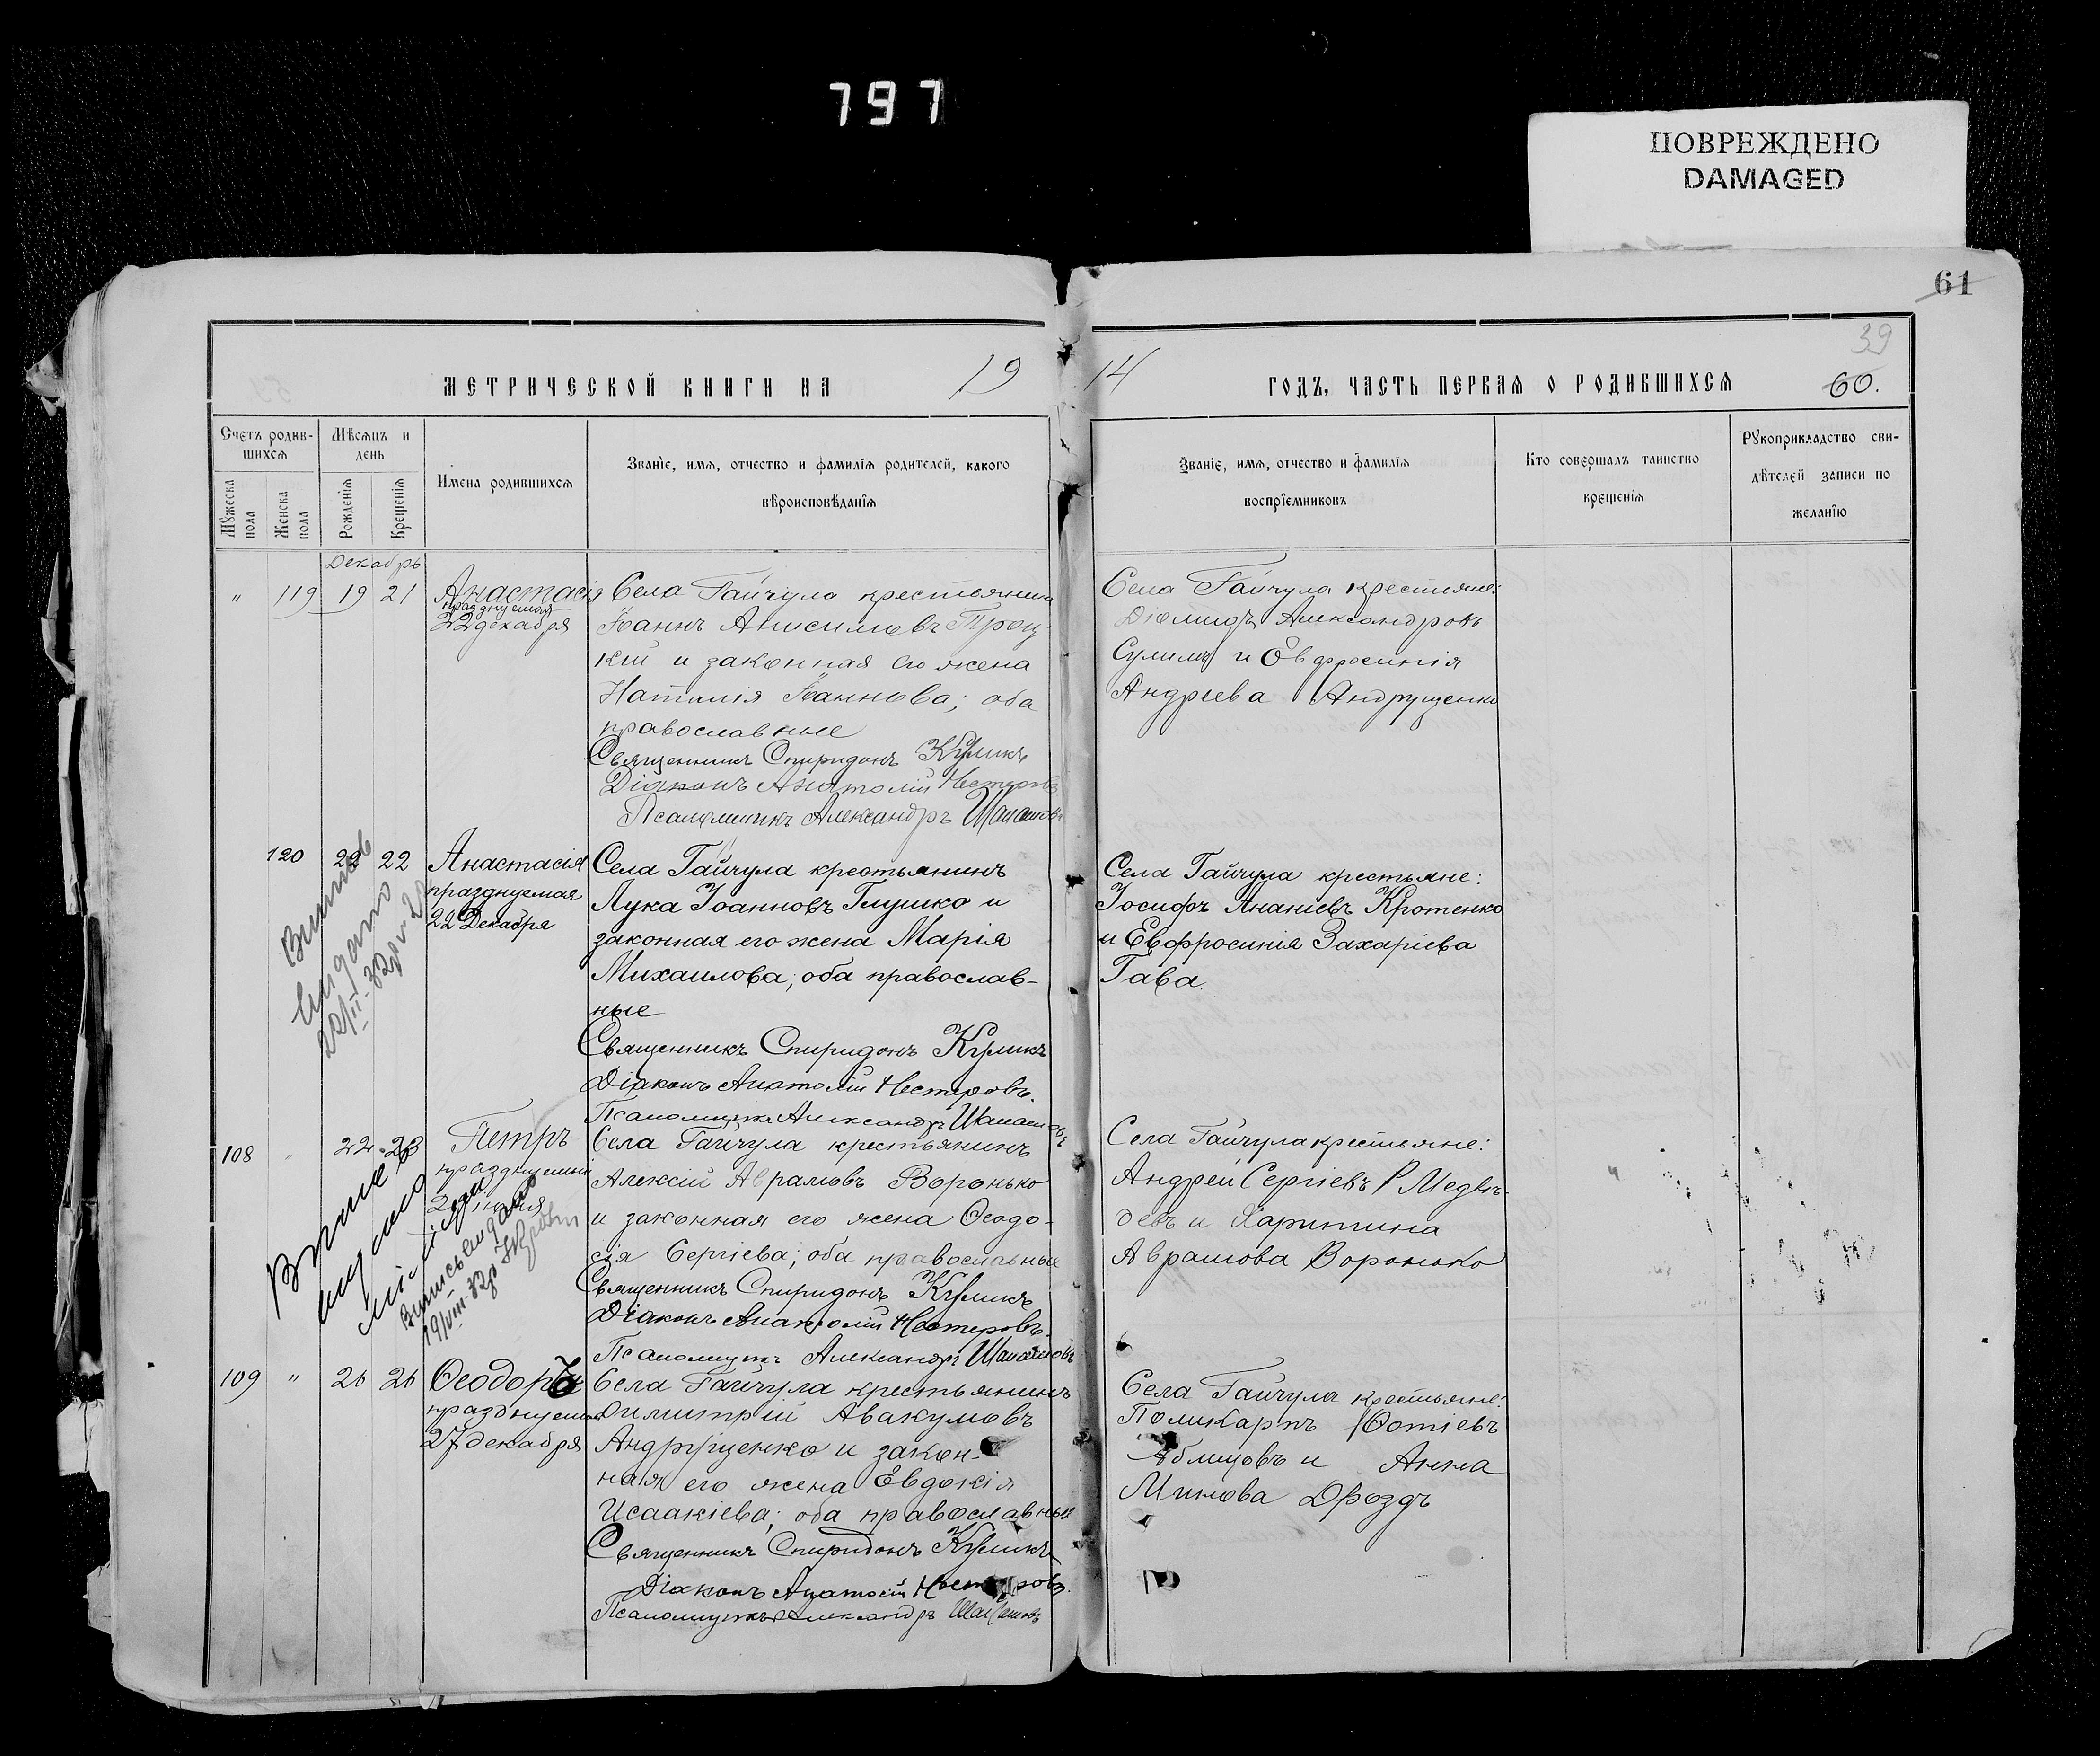 797
ПОВРЕЖДЕНО
DAMAGED
61
39
МЕТРИЧЕСКОЙ КНИГИ НА 19
14 ГОДЪ, ЧАСТЬ ПЕРВАЯ О РОДИВШИХСЯ 60.
Счетъ родив-
шихся
Мѣсяцъ и
день
Мужеска
пола
Женска
пола
Рожденія
Крещенія
Имена родившихся
Званіе, имя, отчество и фамилія родителей, какого
вѣроисповѣданія
Званіе, имя, отчество и фамилія
воспріемниковъ
Кто совершалъ таинство
крещенія
Рукоприкладство сви-
дѣтелей записи по
желанію
Декабрь
" 119 19 21
Анастасія
празднуемая
22 декабря
Села Гайчула крестьянинъ
Іоаннъ Анисимовъ Троц-
кій и законная его жена
Наталія Іоаннова; оба
православные
Священникъ Спиридонъ Куликъ
Діаконъ Анатолій Нестеровъ
Псаломщикъ Александръ
Села Гайчула крестьяне:
Діомидъ Александровъ
Сулима и Евфросинія
Андреева Андрущенко
120 22 22
Анастасія
празднуемая
22 Декабря
Села Гайчула крестьянинъ
Лука Іоанновъ Глушко и
законная его жена Марія
Михаилова; оба православ-
ные
Священникъ Спиридонъ Куликъ
Діаконъ Анатолій Нестеровъ.
Псаломщикъ Александръ
Села Гайчула крестьяне:
Іосифъ Ананіевъ Кротенко
и Евфросинія Захаріева
Гава.
108 " 22 23
Петръ
празднуемый
Села Гайчула крестьянинъ
Алексій Аврамовъ Воронько
и законная его жена Ѳеодо-
сія Сергіева; оба православные
Священникъ Спиридонъ Куликъ
Діаконъ Анатолій Нестеровъ.
Псаломщикъ Александръ
Села Гайчула крестьяне:
Андрей Сергіевъ Медвѣ-
девъ и Харитина
Аврамова Воронько
109 " 26 26
Ѳеодоръ
празднуемый
27 декабря
Села Гайчула крестьянинъ
Димитрій Авакумовъ
Андрущенко и закон-
ная его жена Евдокія
Исаакіева; оба православные
Священникъ Спиридонъ Куликъ
Діаконъ Анатолій Нестеровъ.
Псаломщикъ Александръ
Села Гайчула крестьяне:
Поликарпъ Фотіевъ
и Анна
Дроздъ